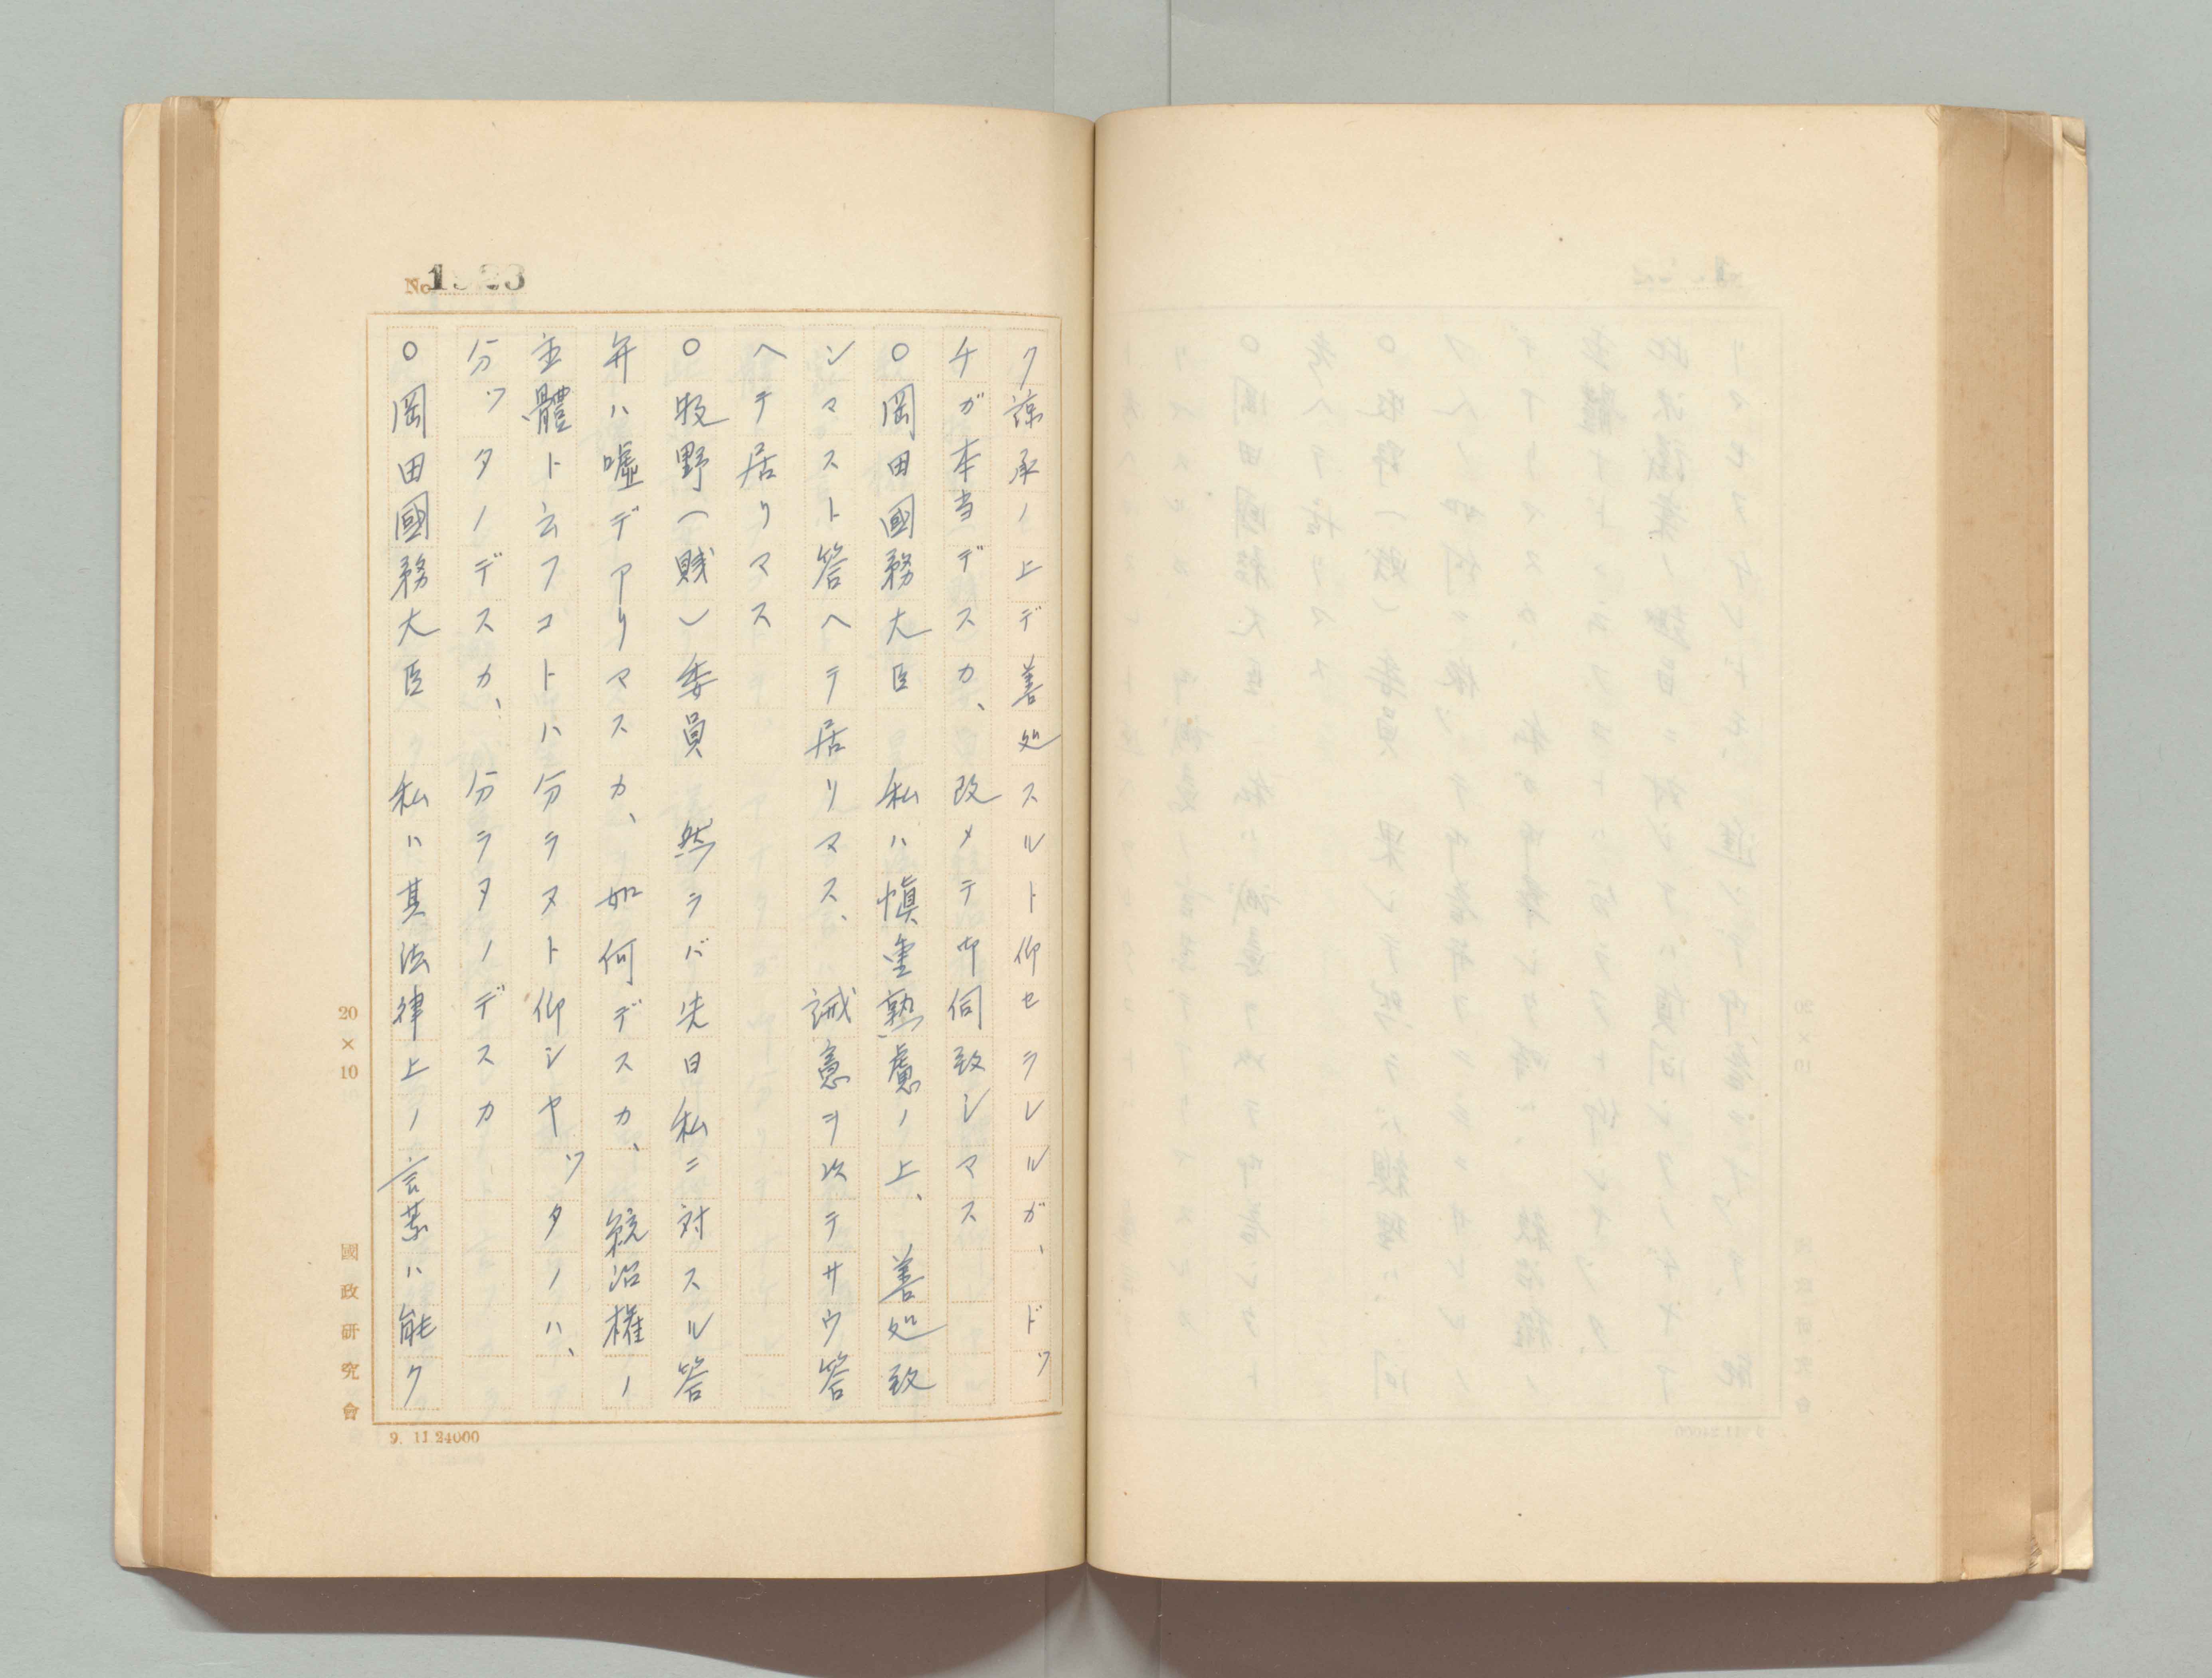 No 1923
ク諒承ノ上デ善処スルト仰セラレルガ、ドツ
チガ本当デスカ、改メテ御伺致シマス
○岡田國務大臣　私ハ慎重熟慮ノ上、善処致
シマスト答ヘテ居リマス、誠意ヲ以テサウ答
ヘテ居リマス
○牧野(賤)委員　然ラバ先日私ニ対スル答
弁ハ嘘デアリマスカ、如何デスカ、統治権ノ
主體ト云フコトハ分ラヌト仰シヤツタノハ、
分ツタノデスカ、分ラヌノデスカ
○岡田國務大臣　私ハ其法律上ノ言葉ハ能ク
20×10
國政研究會
9. 11 24000